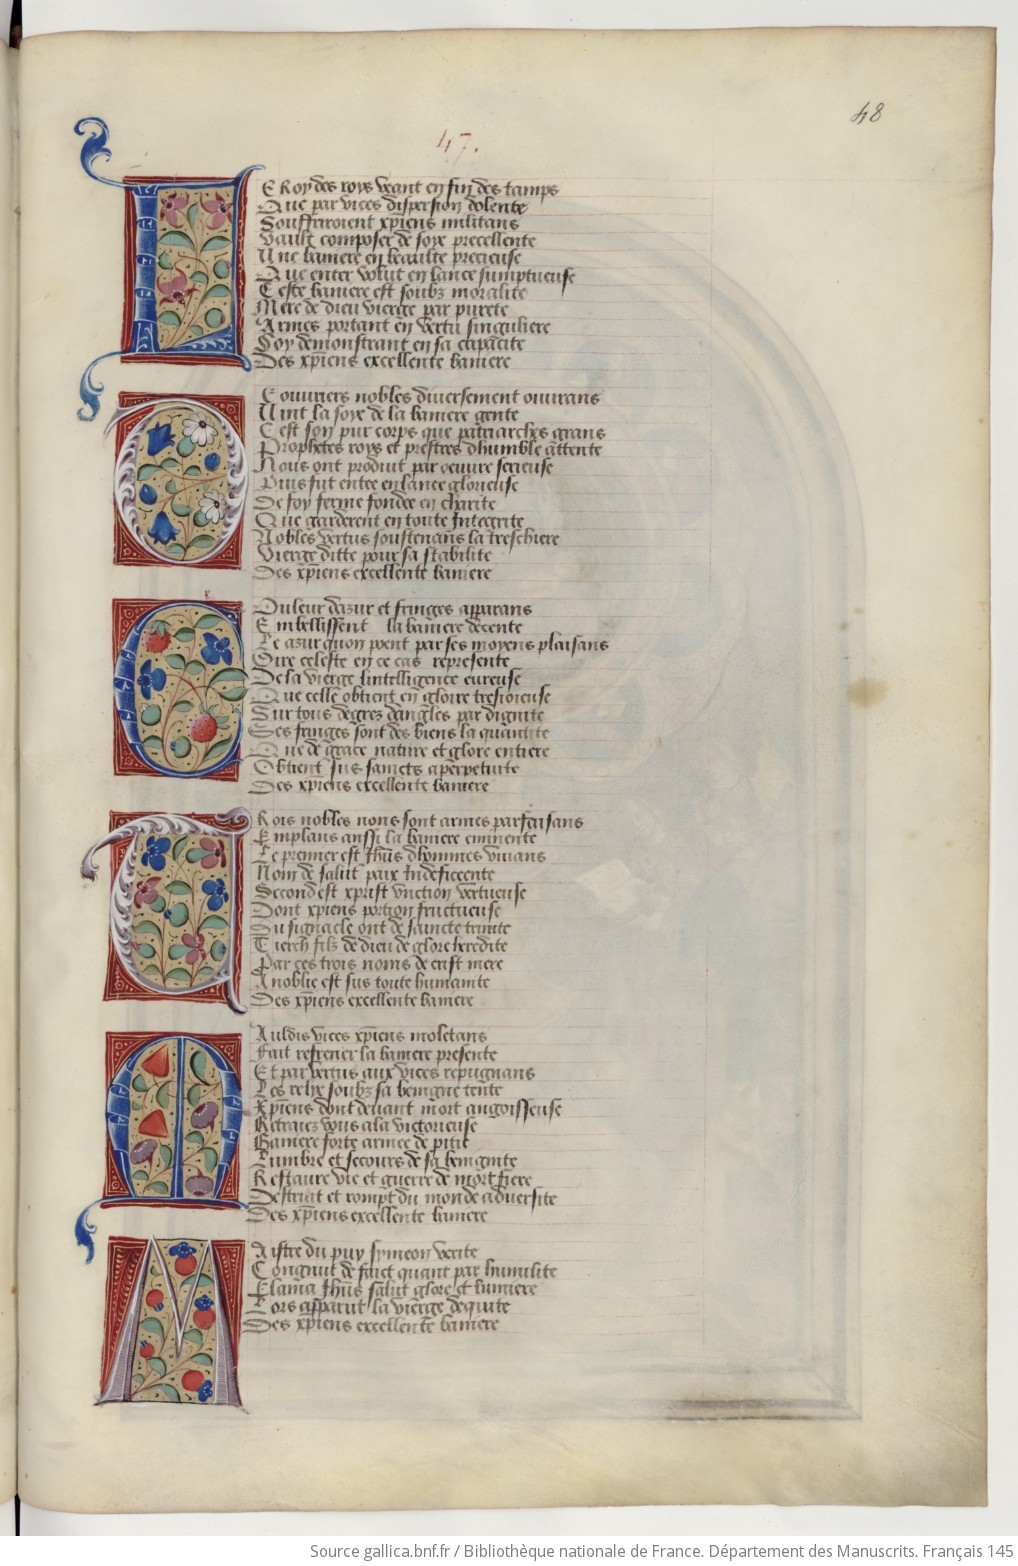 48
47.
LE Roy des roys veant en fin des tamps
Que par vices dispersion dolente
Souffriroient xp̄iens militans
Vault composer de soye precellente
Une baniere en beaulte precieuse
Que enter volut en lance sumptueuse
Ceste baniere est soubz moralite
Mere de dieu vierge par purete
Armes portant en vertu singuliere
Soy demonstrant en sa capacite
Des xp̄iens excellente baniere
D'ouuriers nobles diuersement ouurans
Uint la soye de la baniere gente
Cest son pur corps que patriarches grans
Prophetes roys et prestres dhumble attente
Nous ont produit par oeuure serieuse
Puis fut entee en lance glorieuse
De foy ferme fondee en charite
Que garderent en toute Integrite
Nobles vertus soustenans la treschiere
Vierge ditte pour sa stabilite
Des xp̄iens excellente baniere
COuleur dazur et fringes apparans
Embellissent la baniere decente
Le azur quon poent par ses moyens plaisans
Dire celeste en ce cas represente
De la vierge lintelligence eureuse
Que celle obtient en gloire tresioieuse
Sur tous degres dangles par dignite
Ses fringes sont des biens la quantite
Que de grace nature et glore entiere
Obtient sus saincts a perpetuite
Des xp̄iens excellente baniere
TRois nobles noms sont armes parfensans
Emplans aussi la baniere eminente
Le premier est Jhūs dhommes viuans
Nom de salut paix Indeficente
Second est xp̄rist vnction vertueuse
Dont xp̄iens portion fructueuse
Du signacle ont de saincte trinite
Tierch filz de dieu de glore heredite
Par ces trois noms de cust mere
Anoblie est sus toute humanite
Des xp̄iens excellente baniere
MAuldis vices xp̄iens moletans
Fait refrener la baniere presente
Et par vertus aux vices repugnans
Les relix soubz sa benigne tente
Xp̄iens dont deuant mort angoisseuse
Retraiez vous a la victorieuse
Baniere forte armee de pitie
Lumbre et secours de sa benignite
Restaure vie et guerre de mort fiere
Destruit et rompt du monde aduersite
Des xp̄iens excellente baniere
MAistre du puy symeon verite
Congnut de faict quant par humilite
Clama Jhūs salut glore et lumiere
Lors apparut la vierge dequite
Des xp̄iens excellente baniere
Source gallica.bnf.fr / Bibliothèque nationale de France. Département des Manuscrits. Français 145